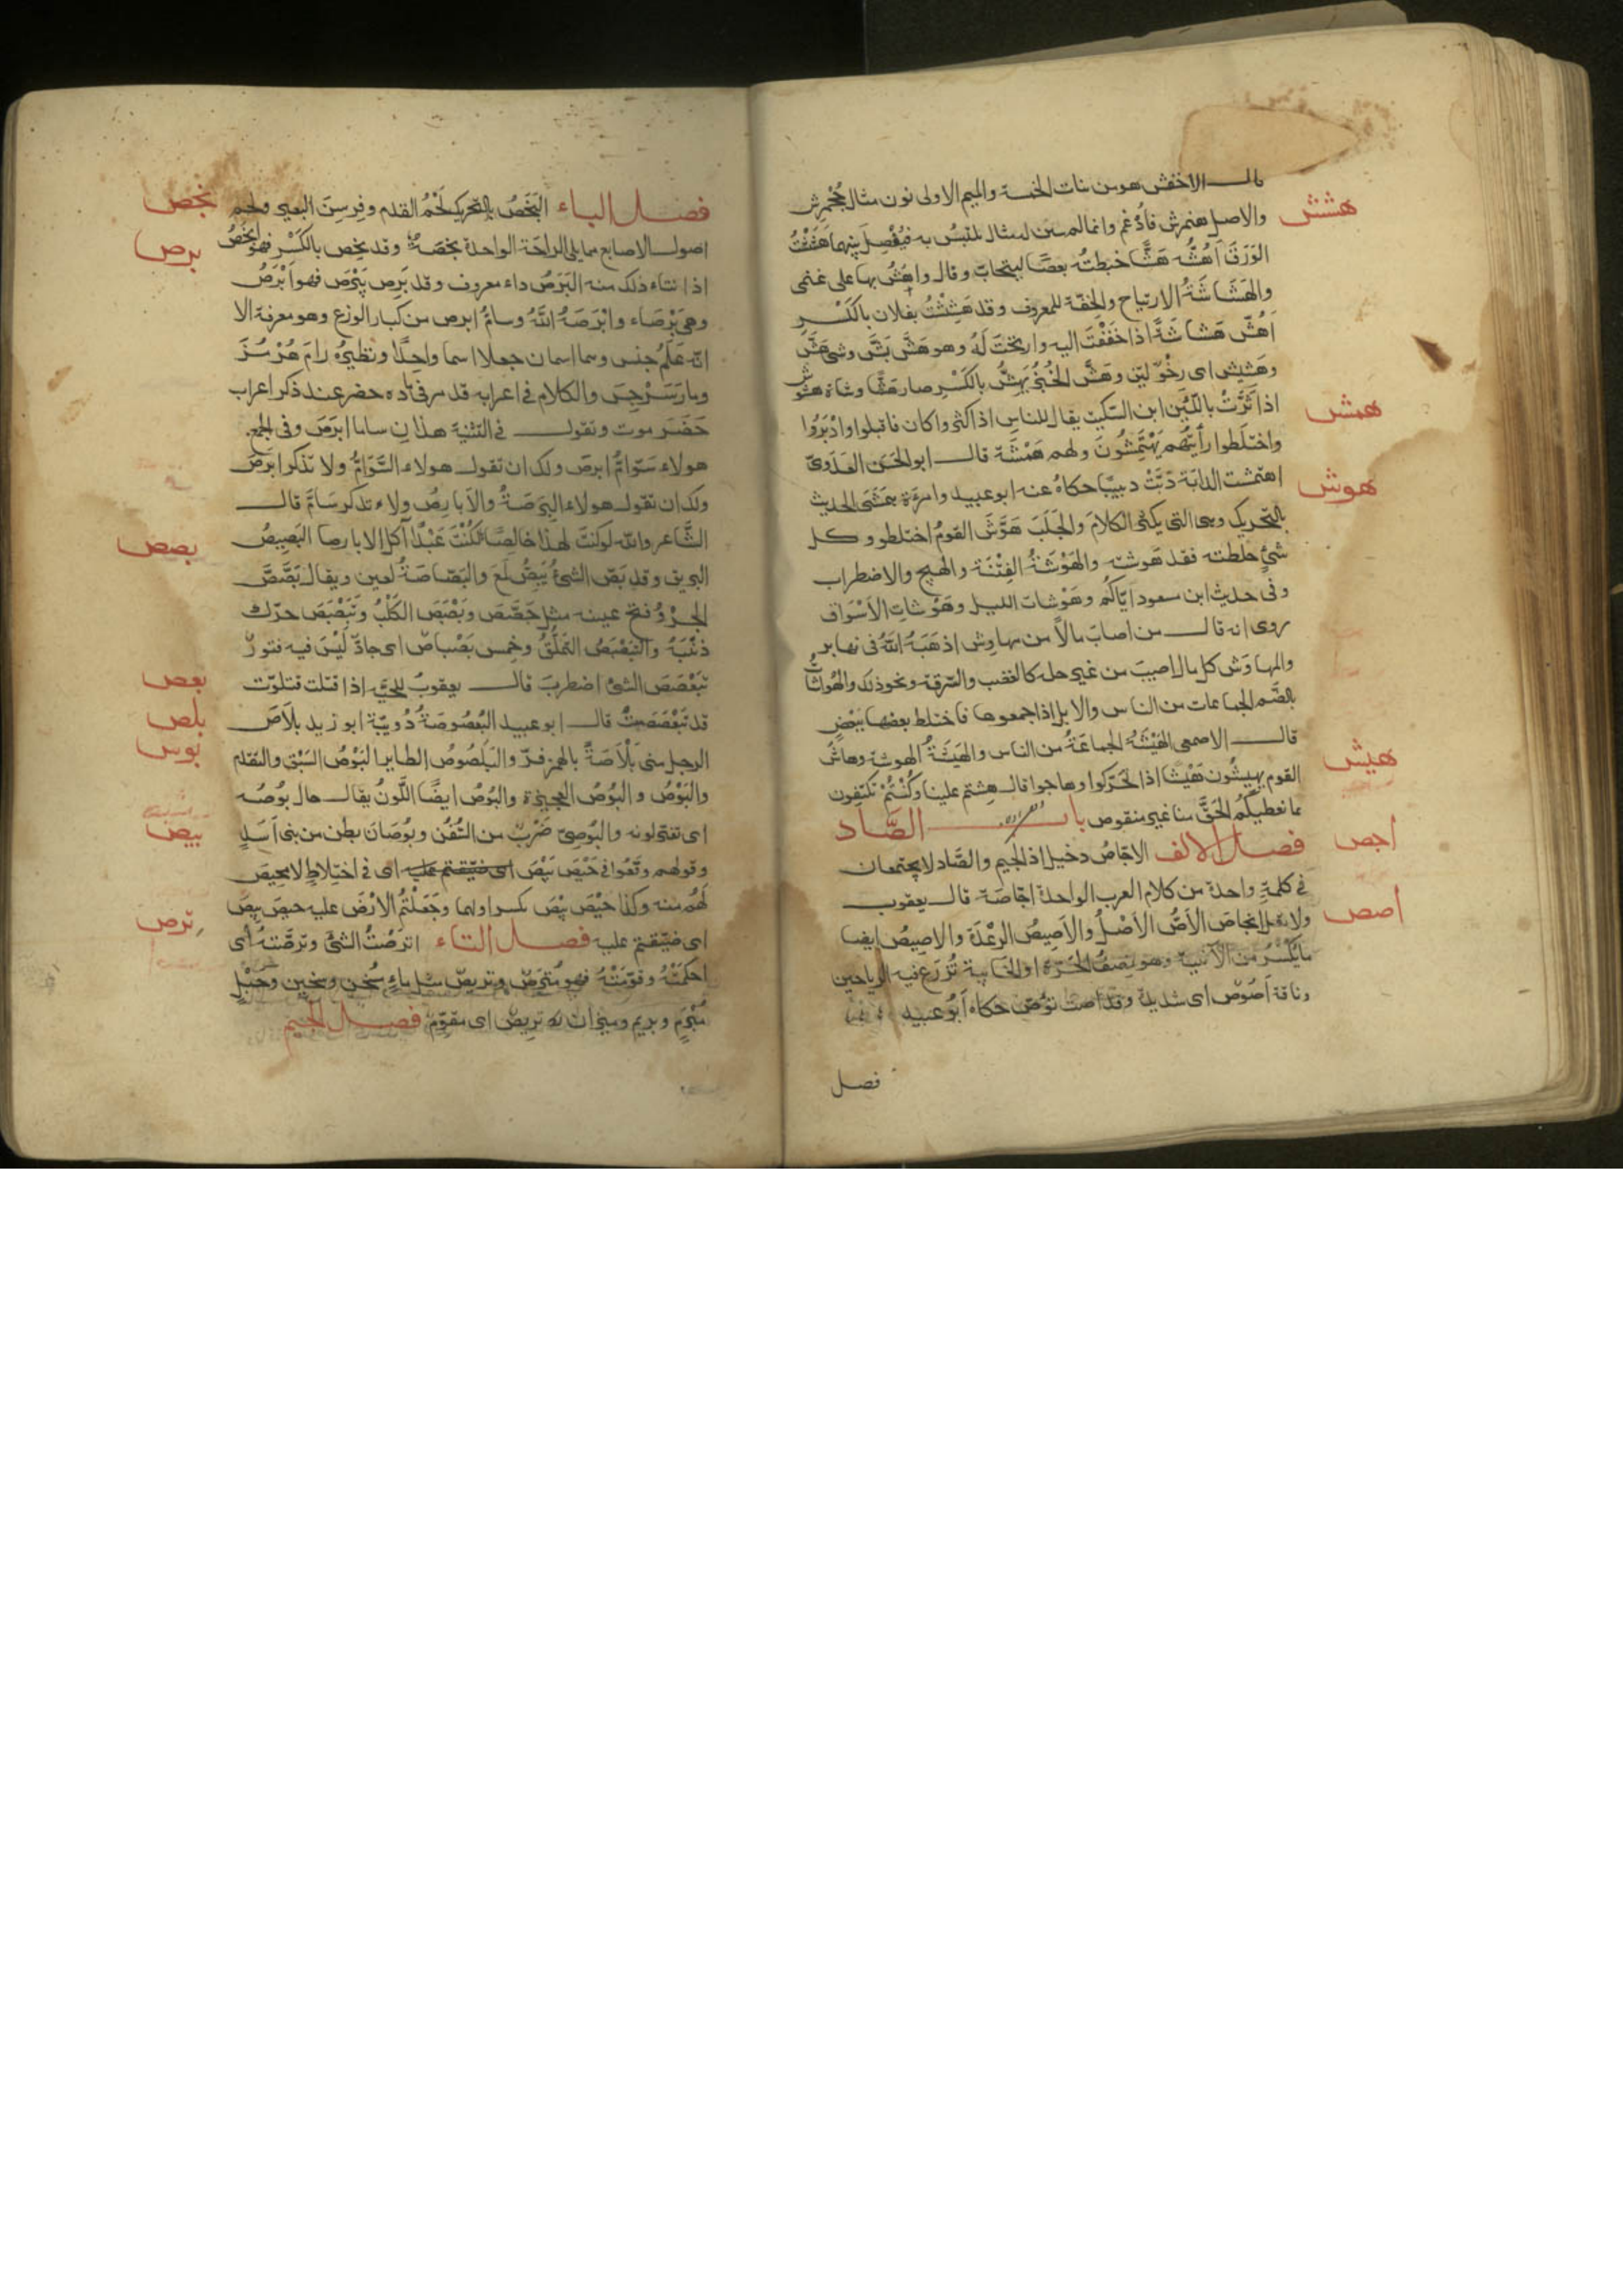 قال الاخفش هو من بنات الخمسة والميم الاولى نون مثال جَحْمَرِش
هشش
والاصل هنمرش فأُدغم وانما لم يبين لمثال يلتبس به فيُفصل بينهما هَشَشْتُ
الوَرَقَ أَهُشّه هَشًّا خبطته بعصًا ليتحاتّ وقال واهُشّ بها على غنمى
والهَشَاشَةُ الارتياح والخِفّة للمعروف وقد هَشِشْتُ بفلان بالكَسْرِ
اَهُشّ هَشاشَةً اذا خَفَفْتَ اليه وارتحتَ لَهُ وهو هَشّ بَشّ وشئ هَشّ
وهَشِيش اى رِخْوٌ ليّن وهَشَّ الخُبْزُ يَهِشُّ بالكَسْرِ صار هَشًّا وشاة هشُوش
همش
اذا ثَرَّتْ باللّبَن ابن السّكيت يقال للناس اذا كثروا كان فاقبلوا وادْبَرُوا
واختلَطوا رأيتُهم يَهْتَمِشُونَ ولهم هَمْشَة قال ابو الحَسَن العَدَوىّ
اهتمشت الدابّة دَبَّتْ دبيبًا حكاهُ عنه ابو عبيد وامرءة هَمَشَى الحديث
هوش
بالتّحريك وهى التى تكثر الكلامَ والجَلَبَ هَوَّشَ القومُ اختلطو وكل
شئٍ خلطته فقد هَوشته والهَوْشَةُ الفِتْنَة والهيج والاضطراب
وفى حديث ابن مسعود ايّاكم وهَوْشات الليل وهَوْشاتِ الاَسْواق
روى انه قال من اصابَ مالاً من مهاوِش اذهَبَهُ اللّهُ فى نهابر
والمهاوَش كل مال اصيبَ من غير حله كالغصب والسّرقة ونحو ذلك والهُواشاتُ
بالضّم الجماعات من الناس والابل اذا جمعوها فاختلط بعضها ببَعْضٍ
هيش
قال الاصمعى الهَيْشَةُ الجماعَةُ من الناس والهَيْشَةُ الهوشة وهاشَ
القوم يهيشُون هَيْشًا اذا تحَرّكوا وهاجوا قال هِشتم علينا وكُنْتُمْ تكتفون
ما نعطيكُم الحَقّ منا غير منقوص باب الصَّاد
اجص
فصل الالف الاجّاصُ دخيل اذ الجيم والصّاد لا يجتمعان
فى كلمةٍ واحدة من كلام العرب الواحدة اجّاصَة قال يعقوب
اصص
ولا تقل انجاص الأصّ الاَصْلُ والاَصِيصُ الرِعْدَة والاصِيصُ ايضا
مايُكْسَرُ من الآنية وهو نصفُ الجَرّة او الخابية تُزرَع فيه الرياحين
وناقة اَصُوص اى شديدة وقد اصت تَؤصّ حكاه اَبُو عبيد
فصل
بخص
فصل الباء البَخَصُ بالتحريك لَحْمُ القدم وفِرسِنِ البعير ولحم
برص
اصول الاصابع مما يلى الراحَة الواحدة بَخَصَةٌ وقد بخِص بالكَسْرِ فهو ابخَصُ
اذا نتاء ذلك منه البَرَصُ داء معروف وقد بَرِص يَبْرَص فهو اَبْرَصُ
وهى بَرْصَاء وابْرَصَهُ اللّهُ وسامُ ابرص من كبار الوزغ وهو معرفة الا
انّه عَلَمُ جنس وهما اسمان جعلا اسما واحِدًا ونظيره رامَ هُرْمُزَ
ومارَسَرْجِسَ والكلام فى اعرابه قد مر فى باده حضر عند ذكر اعراب
حَضَر موت وتقول فى التثنية هذانِ ساما ابرَصَ وفى الجمع
هولاء سَوَامُّ ابرَص ولك ان تقول هولاء السَّوَامُّ ولا تذكر ابرَصَ
ولك ان تقول هولاء البِرَصَةُ والاَبارِصُ ولا تذكر سَامَّ قال
بصص
الشّاعر والله لو كنتُ لهذا خالِصًا لكُنْتُ عَبْدًا آكلُ الابارصا البَصِيصُ
البريق وقد بَصّ الشئُ يَبِصُّ لَمَعَ والبَصّاصَةُ لعين ويقال بَصَّصَ
الجرْوُ فتح عينه مثل جَصَّصَ وبَصْبَصَ الكَلْبُ وتَبَصْبَصَ حرّك
ذَنَبَهُ والتبَصْبُصُ التملُّقُ وخِمسٌ بَصْباصٌ اى جادّ لَيْسَ فيه فتورٌ
بعص
تبَعْصَصَ الشئُ اضطربَ قال يعقوبُ للحيّة اذا قتلت فتلوّت
بلص
قد تبَعْصَصَتْ قال ابو عبيد البُعْصُوصَةُ دُويبّة ابو زيد بلاَصَ
بوس
الرجل منى بَلْأَصَةً بالهمز فرّ والبَلَصُوصُ الطاير البَوْصُ السَّبْق والتقدّم
والبَوْصُ والبُوصُ العجيزة والبُوصُ ايضًا اللَّونُ يقال حال بُوصُه
بيص
اى تغيّر لونه والبُوصِىّ ضَرْبٌ من السُّفُن وبُوصَان بطن من بنى اَسَدٍ
وقولهم وقَعُوا فى حَيْصَ بَيْصَ اى ضيّقتم عليه اى فى اختِلاطٍ لا محِيصَ
لَهُم منه وكذا حِيْصَ بِيْصَ بكسر اولهما وجَعَلْتُمُ الارْضَ عليه حيصَ بيصَ
ترص
اى ضيّقتم عليه فصل التاء اترَصْتُ الشئَ وترّصَتُه اى
احكمْتُهُ وقوّمْتُهُ فهو مُترَصٌ وتريصٌ مثل ماءٍ سُخْنٍ وسخينٍ وحَبْلٍ
مُبْرَمٍ وبريم وميزان تريصٌ اى مقوّم فصل الجيم